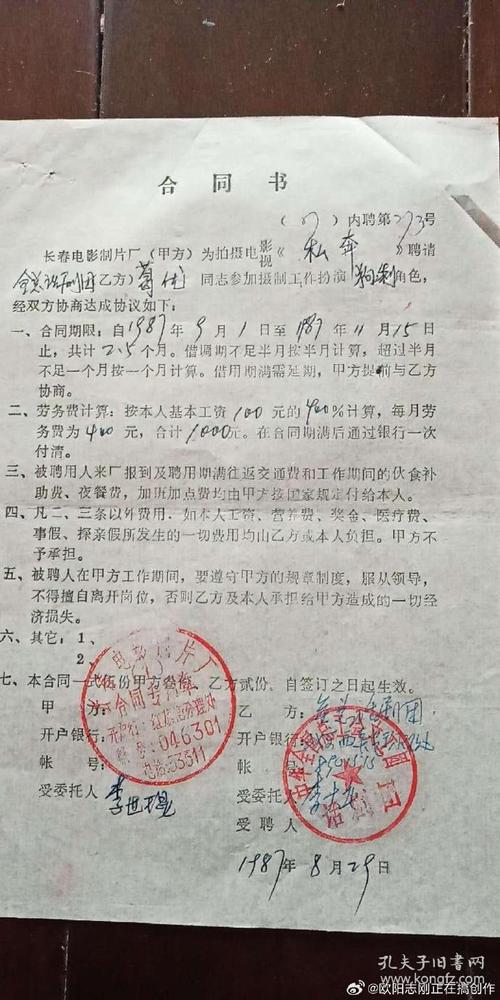 合同书
(87)内聘第273号
长春电影制片厂(甲方)为拍摄电影视《私奔》聘请
全总话剧团(乙方)葛优同志参加摄制工作扮演 角色,
经双方协商达成协议如下:
一、合同期限:自1987年9月1日至1987年11月15日
止,共计2.5个月。借调期不足半月按半月计算,超过半月
不足一个月按一个月计算。借用期满需延期,甲方提前与乙方
协商。
二、劳务费计算:按本人基本工资100元的400%计算,每月劳
务费为400元,合计1000元。在合同期满后通过银行一次
付清。
三、被聘用人来厂报到及聘用期满往返交通费和工作期间的伙食补
助费、夜餐费,加班加点费均由甲方按国家规定付给本人。
四、凡二、三条以外费用,如本人工资、营养费、奖金、医疗费、
事假、探亲假所发生的一切费用均由乙方或本人负担。甲方不
予承担。
五、被聘人在甲方工作期间,要遵守甲方的规章制度,服从领导,
不得擅自离开岗位,否则乙方及本人承担给甲方造成的一切经
济损失。
六、其它:1、
2、
七、本合同一式伍份甲方叁份,乙方贰份,自签订之日起生效。
甲方: 乙方:全总话剧团
开户银行: 开户银行:
帐号: 帐号:
受委托人 李世琨 受委托人
受聘人
1987年8月29日
电影制片厂
合同专用章
046301
电话:53311
孔夫子旧书网
kongfz.com
@欧阳志刚正在搞创作